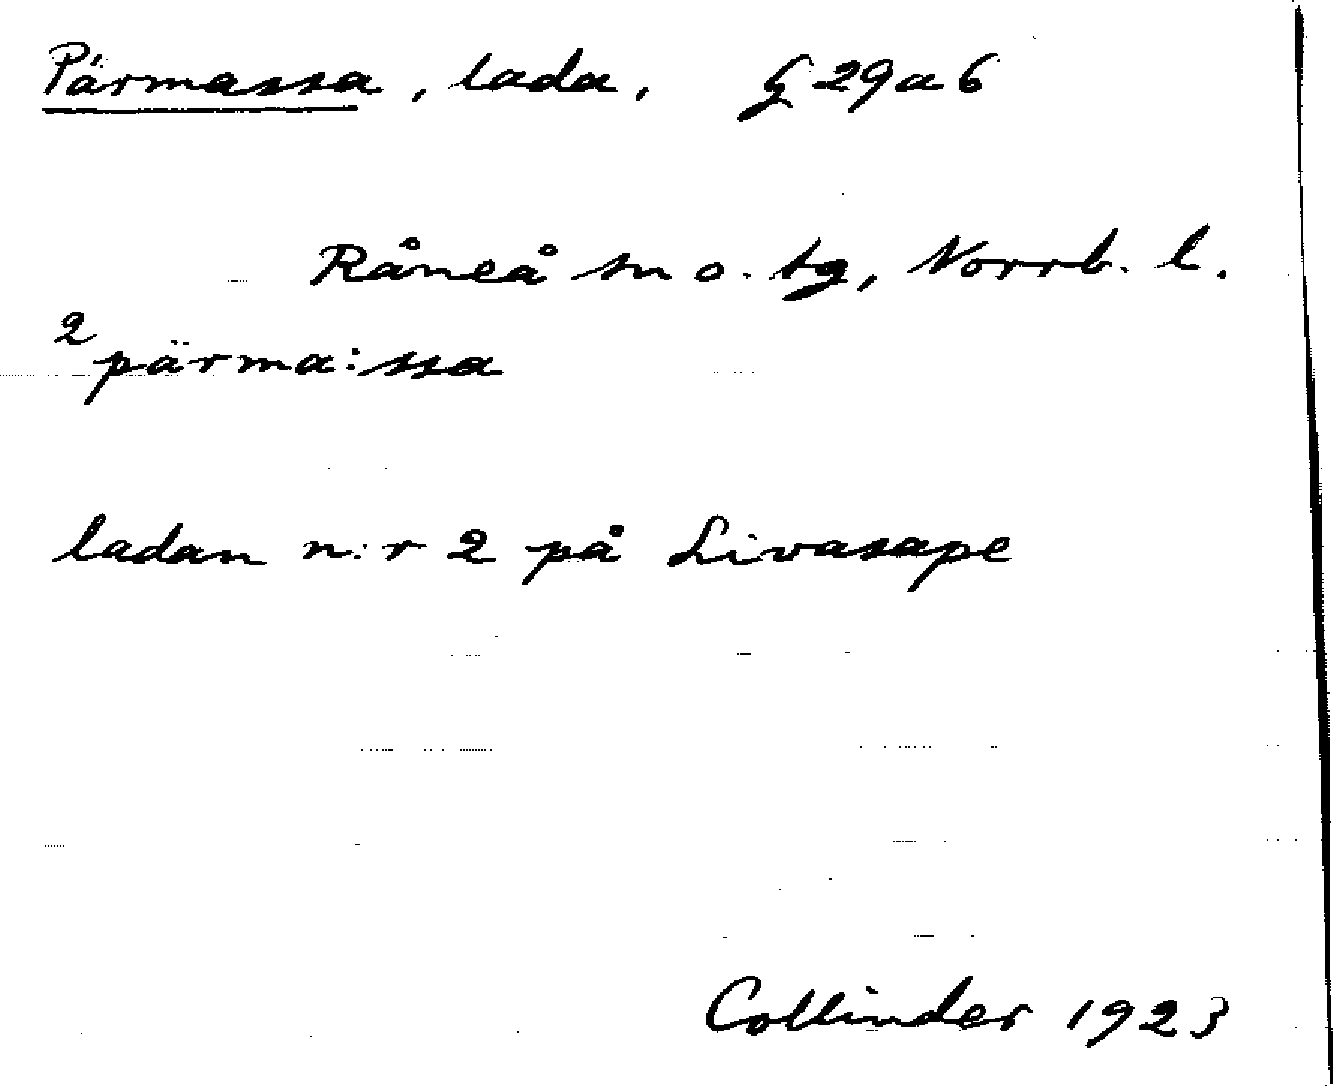 Pärmassa, lada, § 29a6
Råneå sn o. tg, Norrb. l.
2 pärma:ssa
ladan n:r 2 på Livasape
Collinder 1923